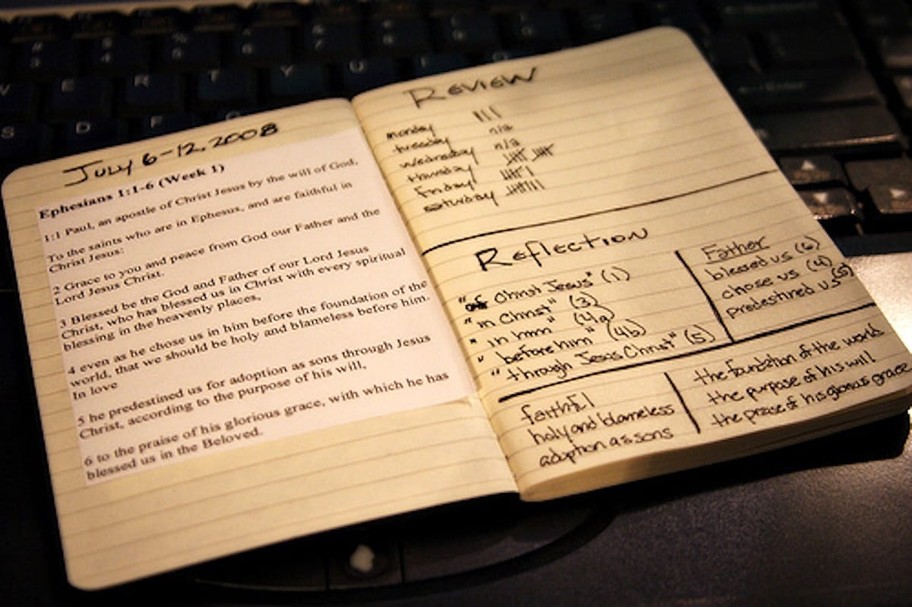 July 6-12, 2008
Ephesians 1:1-6 (Week 1)
1:1 Paul, an apostle of Christ Jesus by the will of God,
To the saints who are in Ephesus, and are faithful in
Christ Jesus:
2 Grace to you and peace from God our Father and the
Lord Jesus Christ.
3 Blessed be the God and Father of our Lord Jesus
Christ, who has blessed us in Christ with every spiritual
blessing in the heavenly places,
4 even as he chose us in him before the foundation of the
world, that we should be holy and blameless before him.
In love
5 he predestined us for adoption as sons through Jesus
Christ, according to the purpose of his will,
6 to the praise of his glorious grace, with which he has
blessed us in the Beloved.
Review
monday
tuesday n/a
wednesday n/a
thursday
friday
saturday
Reflection
"of Christ Jesus" (1)
"in Christ" (3)
"in him" (4a)
"before him" (4b)
"through Jesus Christ" (5)
Father
blessed us (6)
chose us (4)
predestined us (5)
faithful
holy and blameless
adoption as sons
the foundation of the world
the purpose of his will
the praise of his glorious grace
E
R
T
Y
U
S
D
F